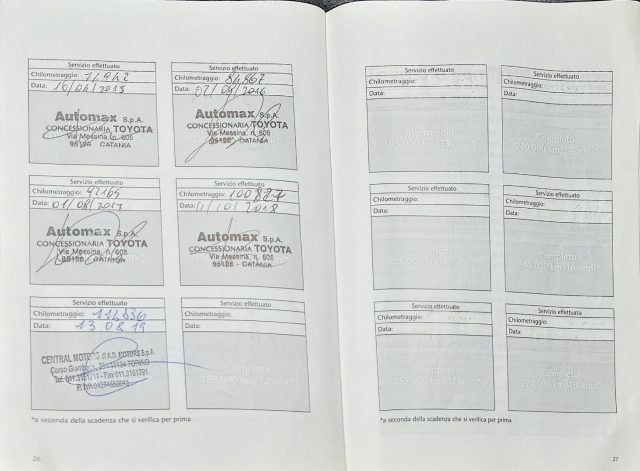 Servizio effettuato
Chilometraggio: 74942
Data: 10/04/2015
Automax S.p.A.
CONCESSIONARIA TOYOTA
Via Messina, n. 605
95126 CATANIA
Servizio effettuato
Chilometraggio: 84867
Data: 02/09/2016
Automax S.p.A.
CONCESSIONARIA TOYOTA
Via Messina, n. 605
95126 CATANIA
Servizio effettuato
Chilometraggio: 92165
Data: 01/08/2017
Automax S.p.A.
CONCESSIONARIA TOYOTA
Via Messina, n. 605
95126 - CATANIA
Servizio effettuato
Chilometraggio: 100827
Data: 11/10/2018
Automax S.p.A.
CONCESSIONARIA TOYOTA
Via Messina, n. 605
95126 - CATANIA
Servizio effettuato
Chilometraggio: 114836
Data: 13 08 19
CENTRAL MOTORS
MOTORS S.p.A.
TORINO
Servizio effettuato
Chilometraggio:
Data:
Completo
180.000 km/12 anni*
*a seconda della scadenza che si verifica per prima
26
Servizio effettuato
Chilometraggio:
Data:
Servizio effettuato
Chilometraggio:
Data:
Completo
210.000 km/14 anni*
Servizio effettuato
Chilometraggio:
Data:
Servizio effettuato
Chilometraggio:
Data:
Completo
240.000 km/16 anni*
Servizio effettuato
Chilometraggio:
Data:
Intermedio
255.000 km/17 anni*
Servizio effettuato
Chilometraggio:
Data:
Completo
270.000 km/18 anni*
*a seconda della scadenza che si verifica per prima
27